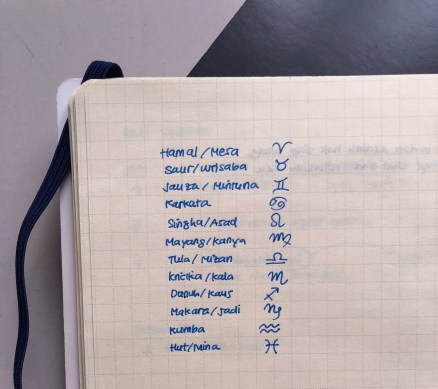 Hamal/Mesa ♈
Saur/Wrisaba ♉
Jauza/Mintuna ♊
Karkata ♋
Singha/Asad ♌
Mayang/Kanya ♍
Tula/Mizan ♎
Kala ♏
Danuh/Kaus ♐
Makara/Jadi ♑
Kumba ♒
Hut/Mina ♓